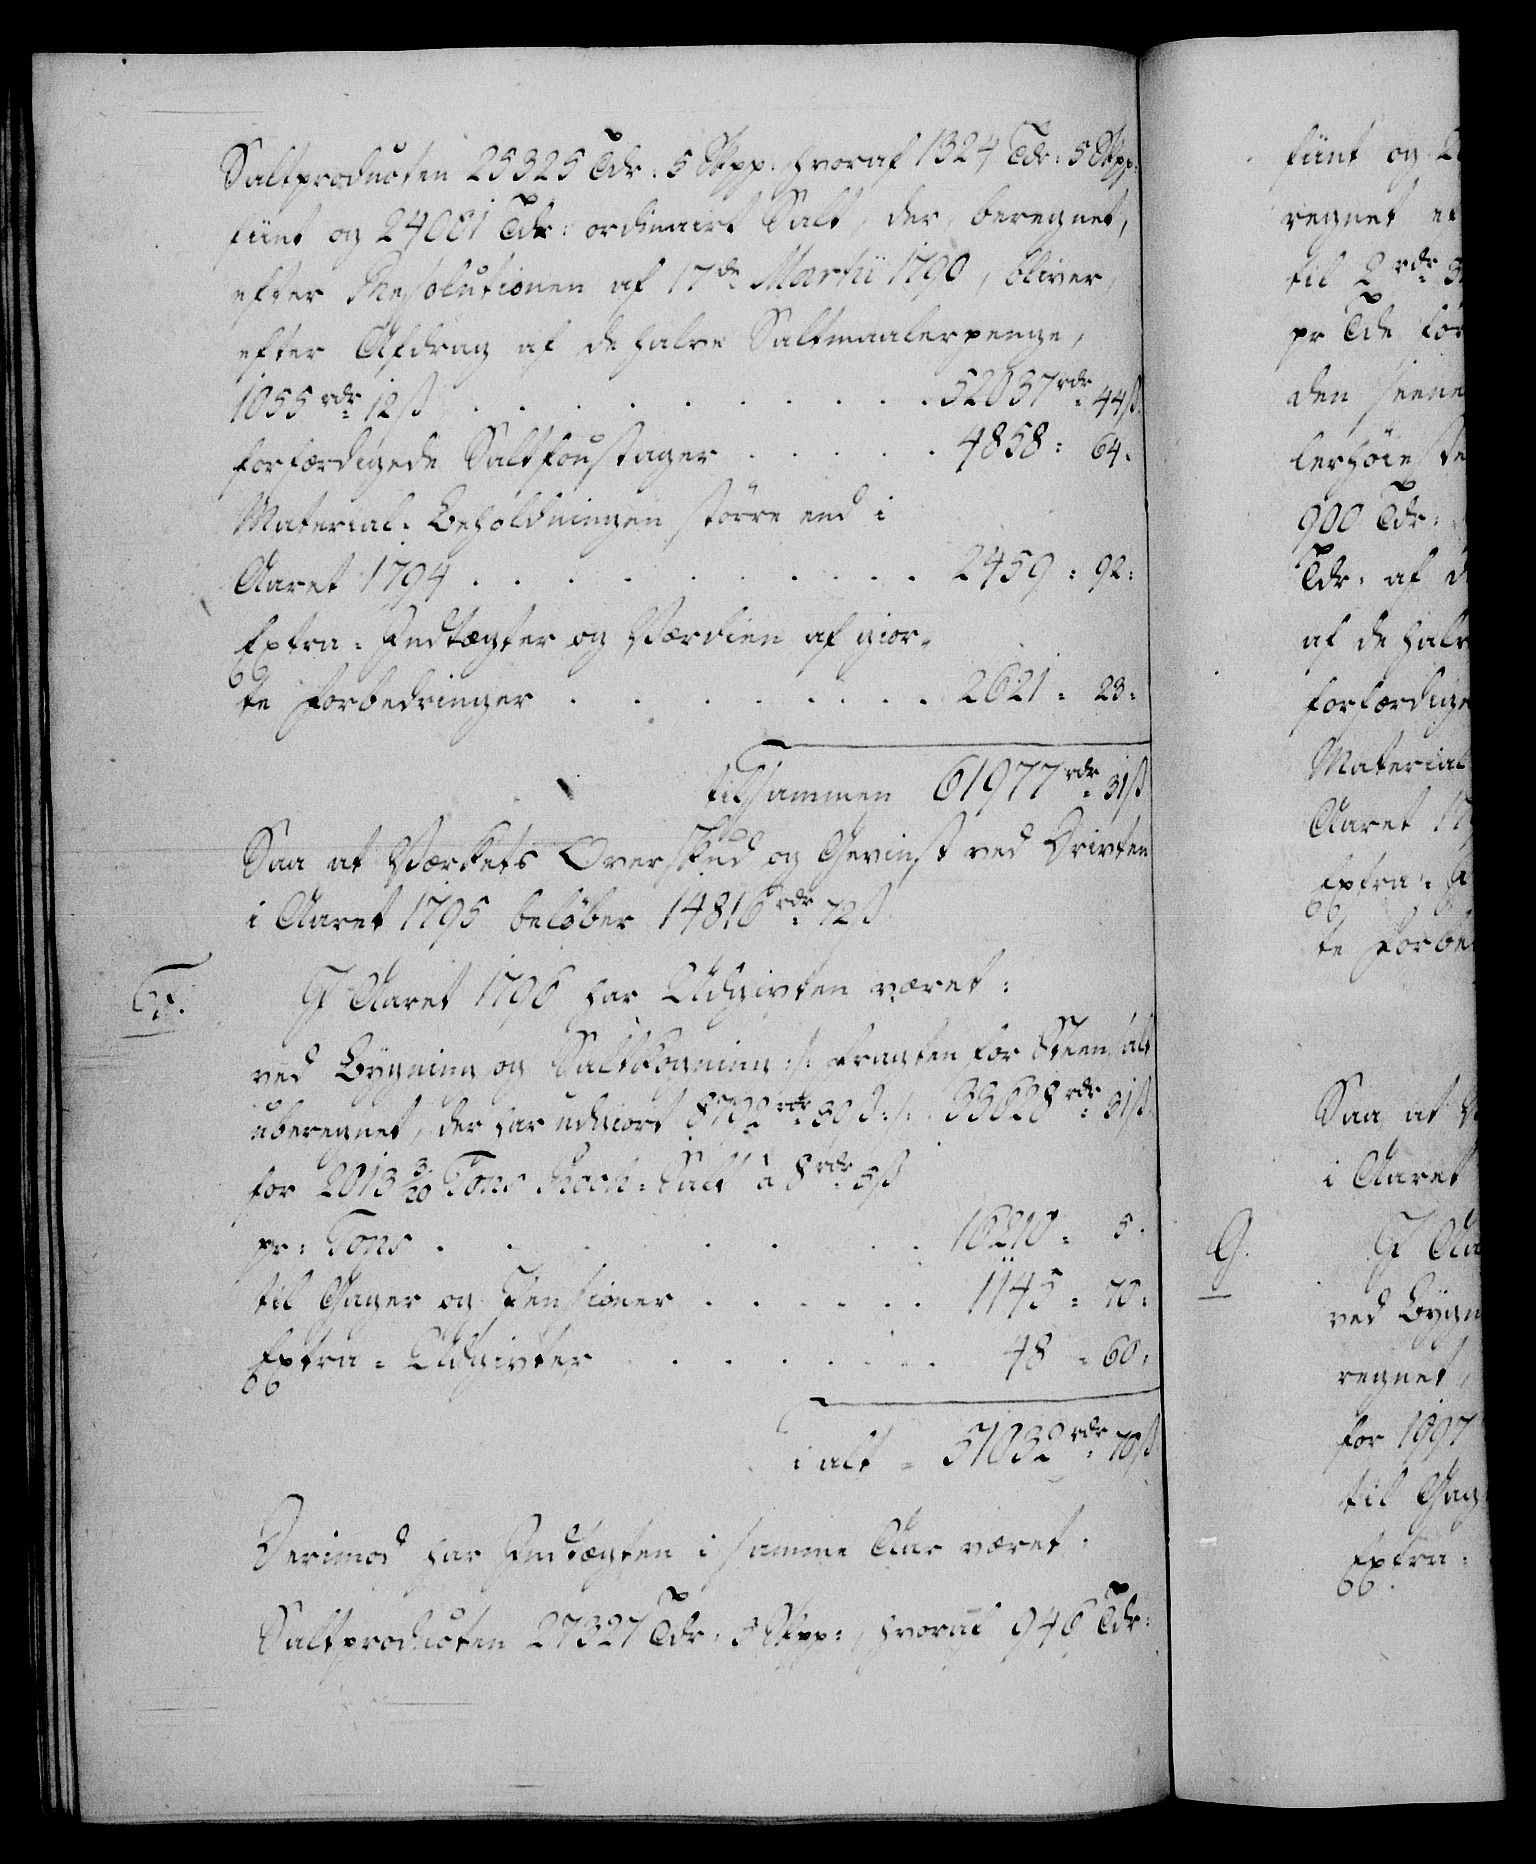 Saltproducten 25325 Tdr: 5 Skpp: hvoraf 1324 Tdr: 5 Skpp:
fiint og 24081 Tdr: ordinairt Salt, der, beregnet,
efter Resolutionen af 17de Martii 1790, bliver,
efter Afdrag af de halve Saltmaalerpenge,
1055 rdr 12ß . . . . . . . . . . 52037 rdr 44ß.
forfærdigede Saltfoustager . . . . . 4858: 64.
Material-Beholdningen større end i
Aaret 1794 . . . . . . . . . 2459: 92:
Extra-Indtægter og Værdien af gior-
te Forbedringer . . . . . . . . 2621 = 23:
tilsammen 61977 rdr 31ß
Saa at Værkets Overskud og Gevinst ved Drivten
i Aaret 1795 beløber 14816 rdr 72ß
F.
I Aaret 1796 har Udgivten været:
ved Bygning og Saltkogning :/: Fragten for Steensalt
uberegnet, der har udgiort 8702 rdr 59ß :/: . 33628 rdr 31ß.
for 2013 3/20 Tons Rock-Salt à 8 rdr 5ß
pr: Tons . . . . . . . . . 16210 = 5.
til Gager og Pensioner . . . . . . 1145 = 70:
Extra-Udgivter . . . . . . . 48 = 60:
i alt = 51032 rdr 70ß
Derimod har Indtægten i samme Aar været:
Saltproducten 27327 Tdr: 5 Skpp:, hvoraf 946 Tdr:
fiint og
regnet ef
til 2 rdr 3
pr Tde for
den fiine
lerhøieste
900 Tdr:
Tdr: af d
af de halv
forfærdige
Material
Aaret 17
Extra-
te Forbe
Saa at V
i Aaret
G.
I Aa
ved Bygn
regnet,
for 1997
til Gag
Extra-